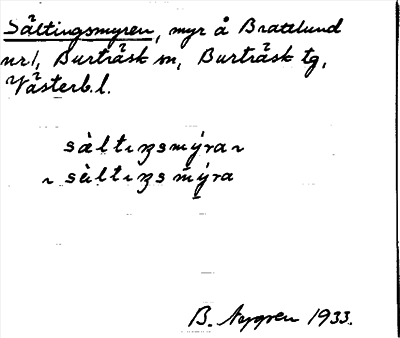 Sältingsmyren, myr å Brattlund
nr 1, Burträsk sn, Burträsk tg,
Västerb. l.
sàltıŋsmýra ~
~ sàltıŋsmýra
B. Nygren 1933.